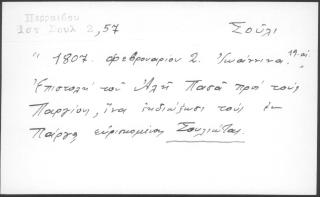 Περραιβου
Ιστ Σουλ 2, 57
Σούλι
" 1807. Φεβρουαρίου 2. Ἰωάννινα. 19 αἰ.
Ἐπιστολὴ τοῦ Ἀλῆ Πασᾶ πρὸς τοὺς
Παργίους, ἵνα ἐκδιώξωσι τοὺς ἐν
Πάργᾳ εὑρισκομένους Σουλιώτας.